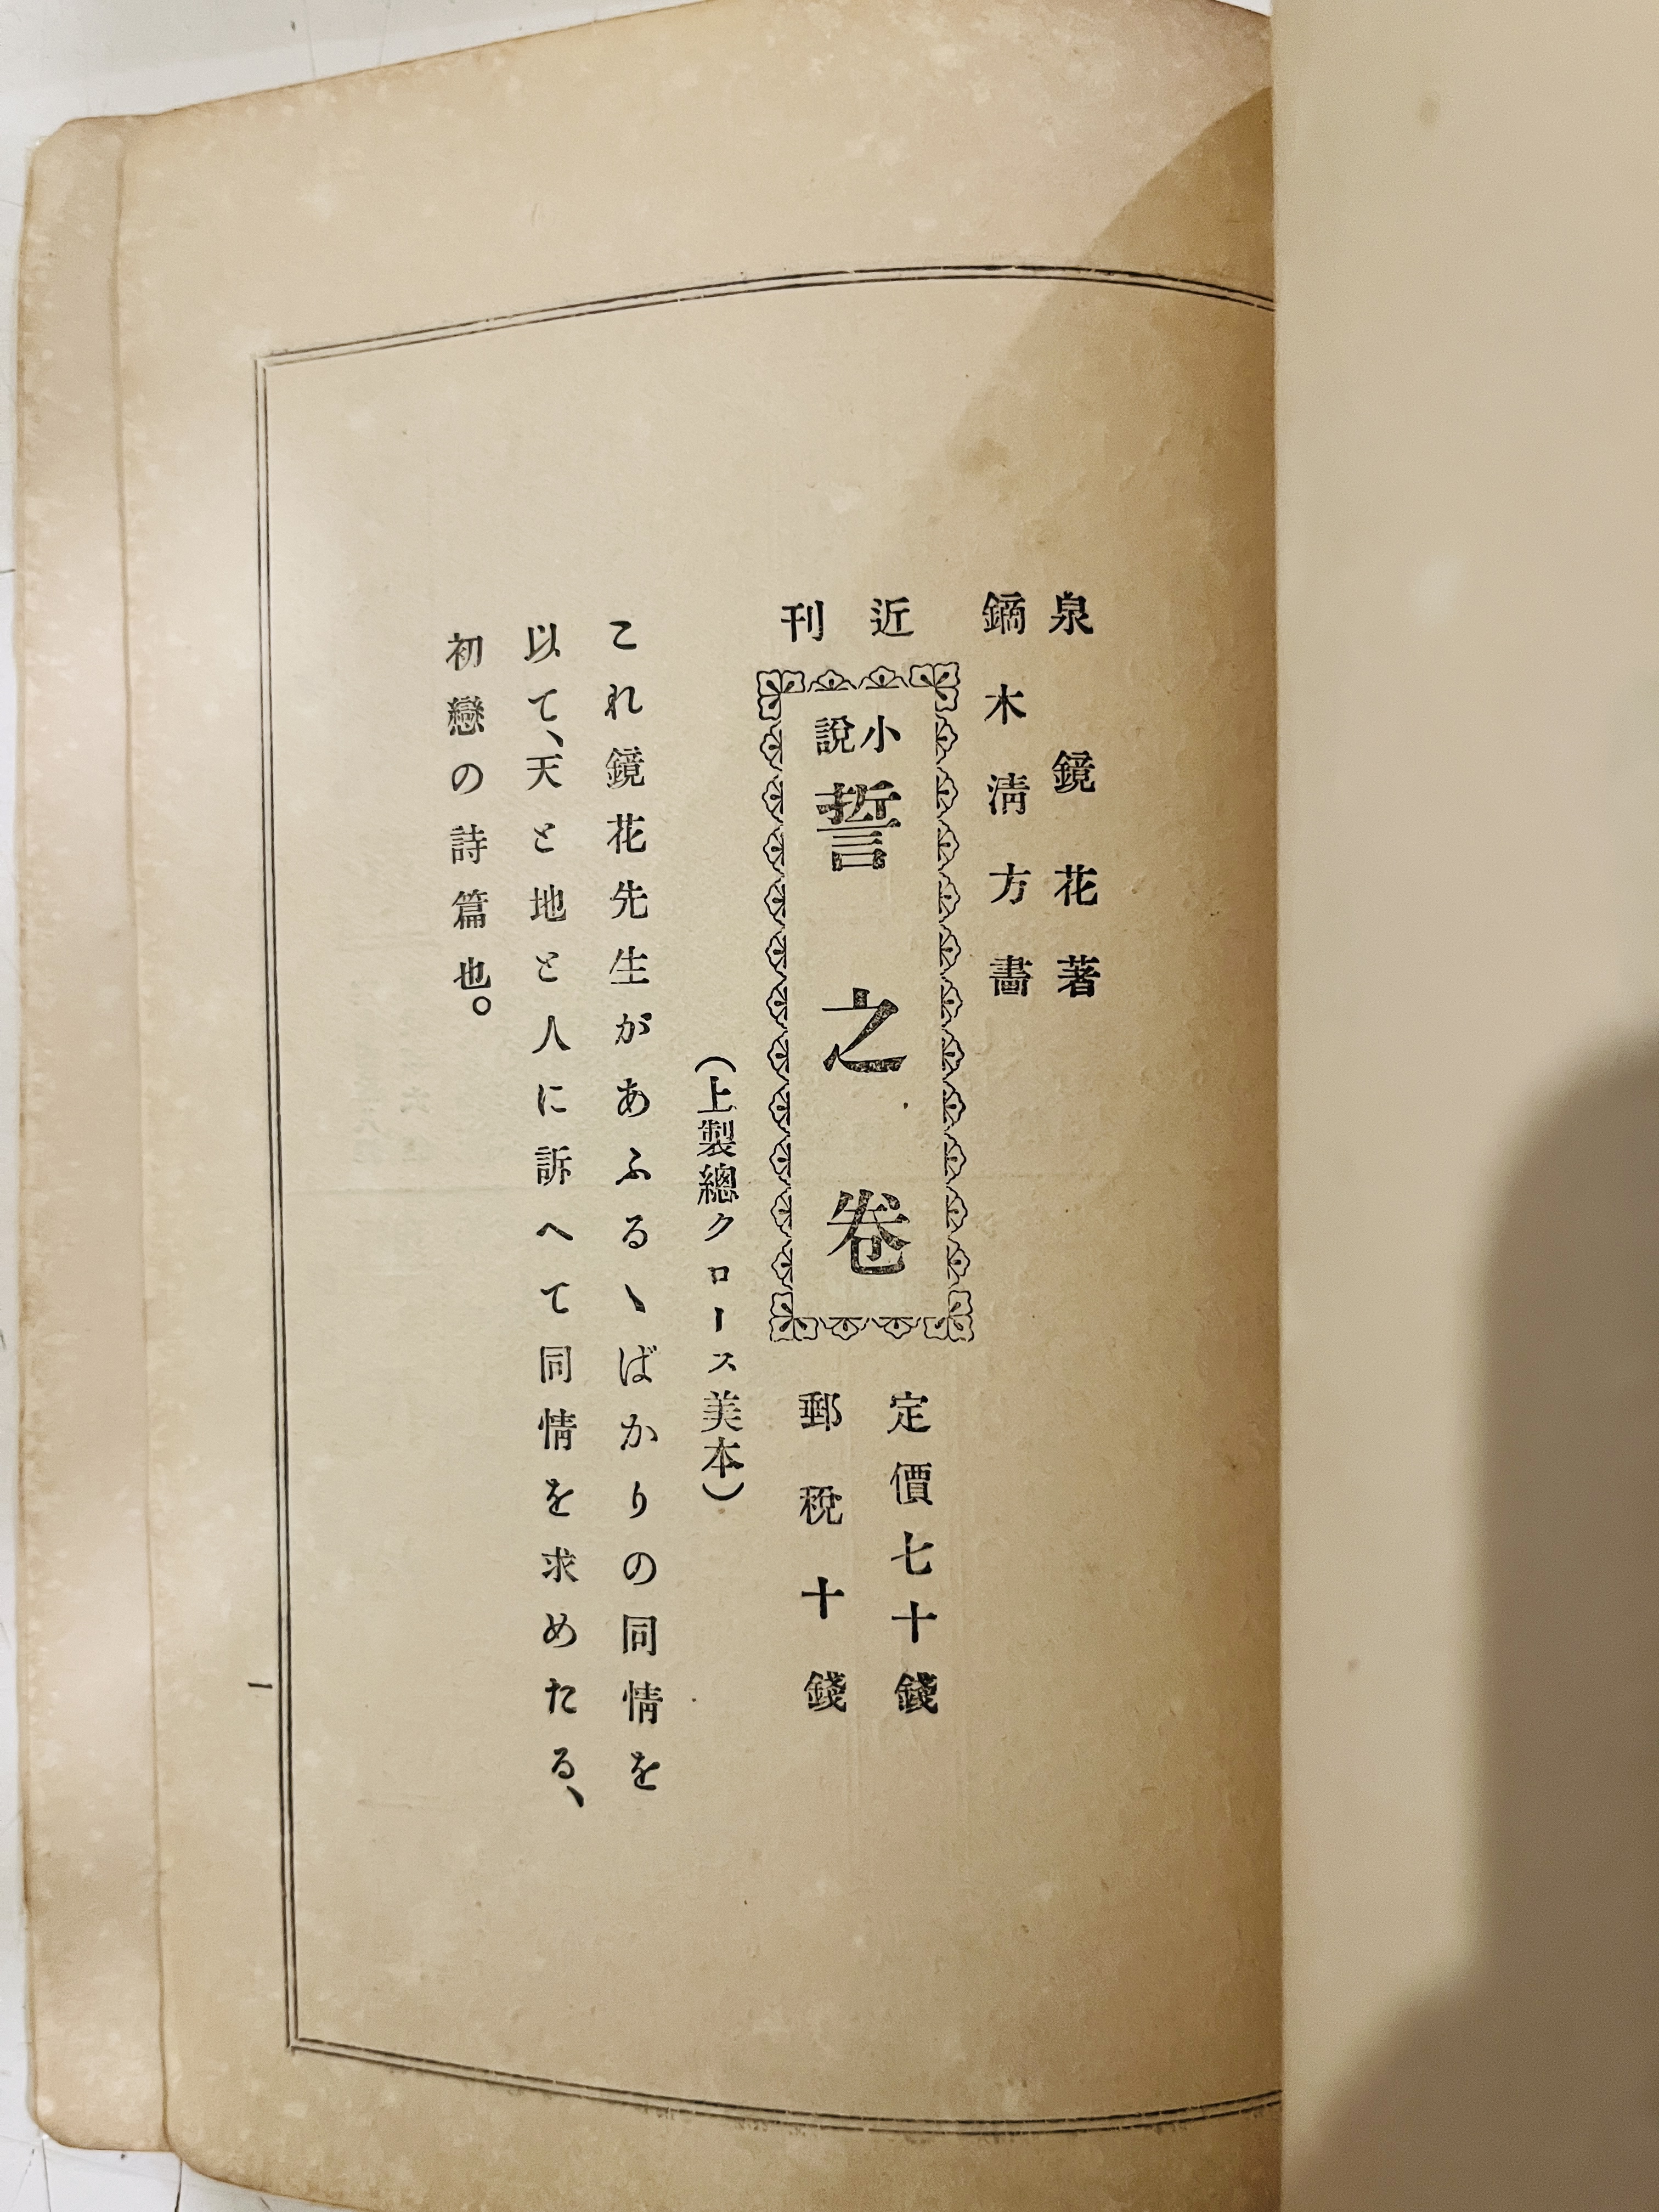 泉鏡花著
鏑木淸方畵
近刊
小說
誓之卷
定價七十錢
郵稅十錢
(上製總クロース美本)
これ鏡花先生があふるゝばかりの同情を
以て、天と地と人に訴へて同情を求めたる、
初戀の詩篇也。
一